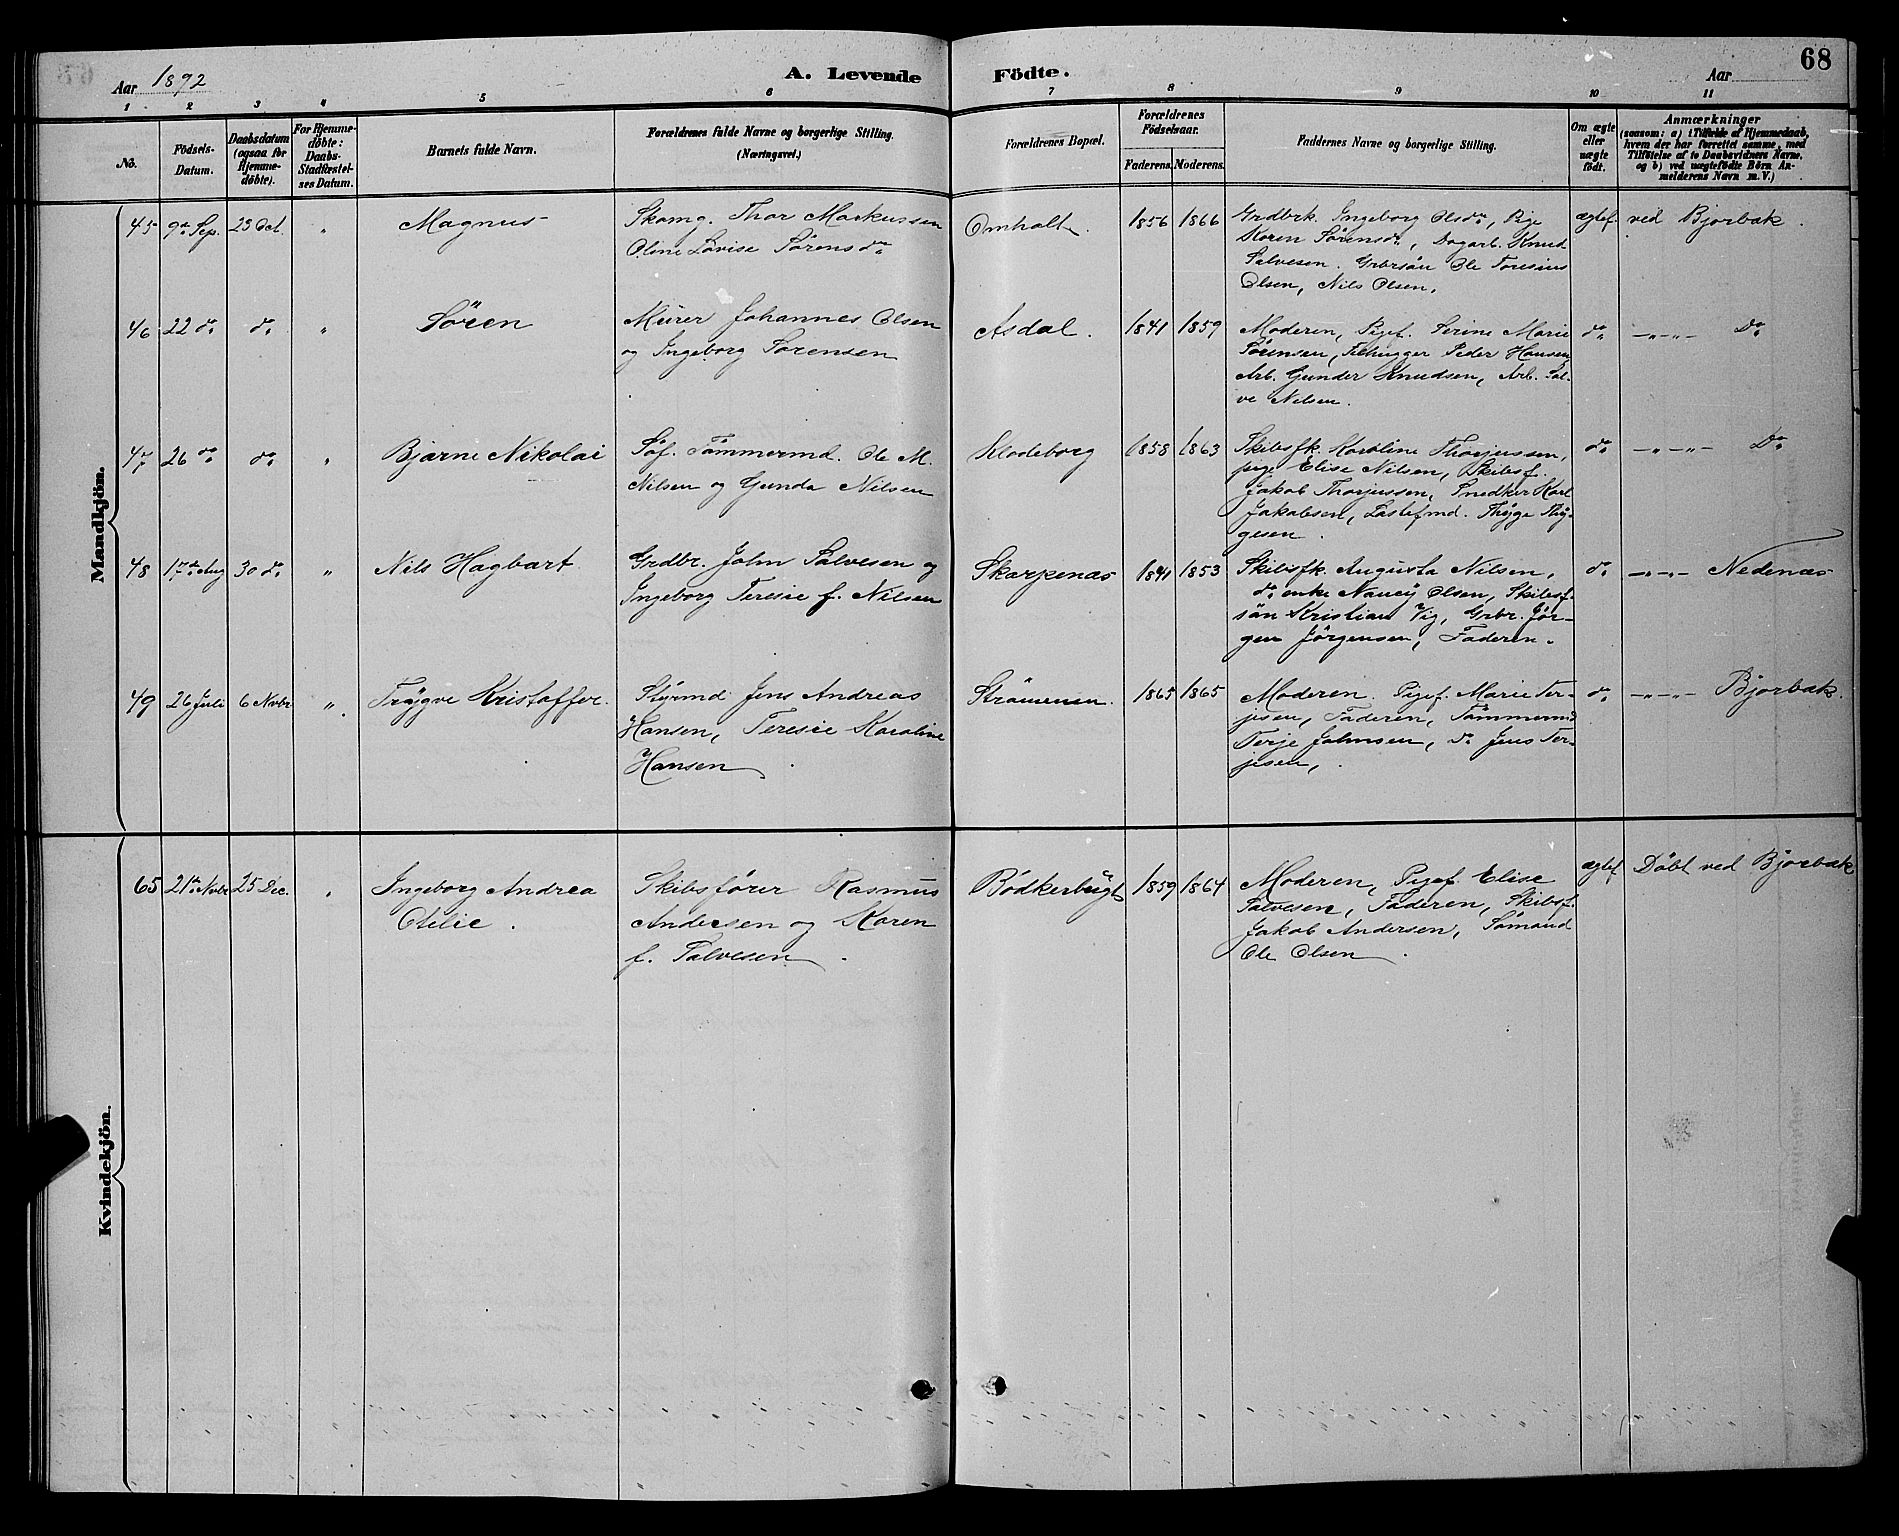 68
Aar 1892
A. Levende Födte.
Aar
1 2 3 4 5 6 7 8 9 10 11
No.
Födsels-
Datum.
Daabsdatum
(ogsaa for
Hjemme-
döbte).
For Hjemme-
döbte:
Daabs-
Stadfæstel-
ses Datum.
Barnets fulde Navn.
Forældrenes fulde Navne og borgerlige Stilling.
(Næringsvei.)
Forældrenes Bopæl.
Forældrenes
Födselsaar.
Faderens. Moderens.
Faddernes Navne og borgerlige Stilling.
Om ægte
eller
uægte
födt.
Anmærkninger
(saasom: a) i Tilfælde af Hjemmedaab,
hvem der har forrettet samme, med
Tilföielse af to Daabsvidners Navne,
og b) ved uægtefödte Börn An-
melderens Navn m. V.)
Mandkjön.
45 9de Sep. 23 Oct. " Magnus
Skomg. Thor Markussen
Oline Lovise Sörensdr
Omholt. 1856 1866
Grdbrk. Ingeborg Olsdr, Pige
Karen Sörensdr, Dagarb. Knud
Salvesen. Grbrsön Ole Toresius
Olsen, Nils Olsen.
ægtef. ved Bjorbæk.
46 22 do do " Sören
Murer Johannes Olsen
og Ingeborg Sorensen
Asdal. 1841 1859
Moderen, Pigef. Serine Marie
Sörensen, Stenhugger Peder Hansen,
Arb. Gunder Knudsen, Arb. Sal-
ve Nilsen.
do -"-"- Do
47 26 do do " Bjarne Nikolai
Söf. Tömmermd. Ole M.
Nilsen og Gunda Nilsen
Klodeborg 1858 1863
Skibsfk. Karoline Thorjussen,
pige Elise Nilsen, Skibsf.
Jakob Thorjussen, Snedker Karl
Jakobsen, Lastefmd. Thyge Thy-
gesen.
do -"-"- Do
48 17de Aug 30 do " Nils Hagbart.
Grdbr. John Salvesen og
Ingeborg Teresie f. Nilsen
Skarpenæs 1841 1853
Skibsfk. Augusta Nilsen,
do enke Nancy Olsen, Skibsf-
sön Kristian Vig, Grbr. Jör-
gen Jörgensen, Faderen.
do -"-"- Nedenæs
49 26 Juli 6 Nvbr " Trygve Kristoffer.
Styrmd. Jens Andreas
Hansen, Teresie Karoline
Hansen
Strömmen. 1865 1865
Moderen. Pigef. Marie Ter-
jesen, Faderen, Tömmermd
Terje Johnsen, do Jens Ter-
jesen,
do -"-"- Bjorbæk.
Kvindekjön.
65 21de Nvbr 25 Dec. " Ingeborg Andrea
Otelie.
Skibsförer Rasmus
Andersen og Karen
f. Salvesen.
Bödkerbugt 1859 1864
Moderen, Pigef. Elise
Salvesen, Faderen, Skibsf.
Jakob Andersen, Sömand
Ole Olsen.
ægtef. Döbt ved Bjorbæk